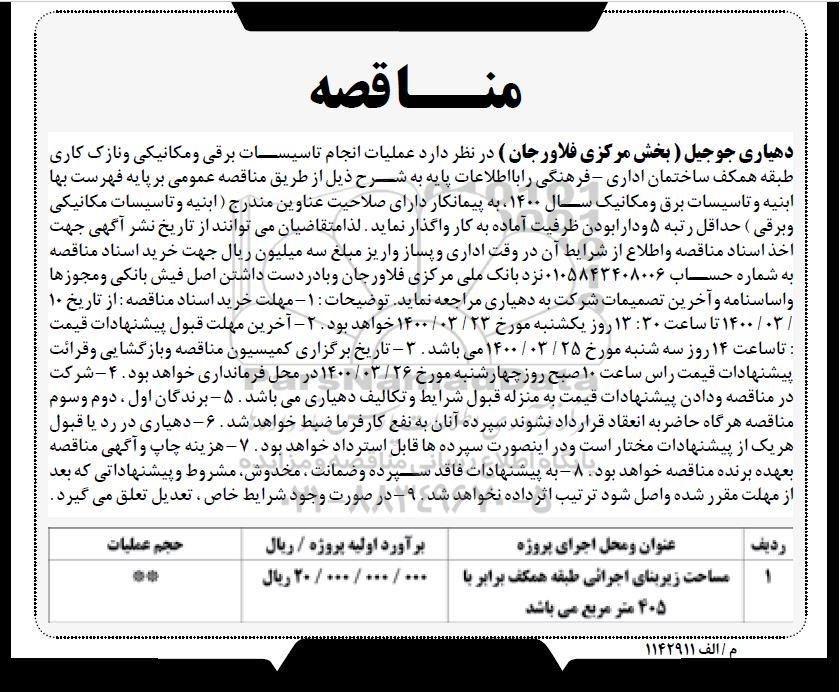 منـــــاقصه
دهیاری جوجیل ( بخش مرکزی فلاورجان ) در نظر دارد عملیات انجام تاسیســـات برقی ومکانیکی ونازک کاری
طبقه همکف ساختمان اداری – فرهنگی رابااطلاعات پایه به شـــرح ذیل از طریق مناقصه عمومی برپایه فهرست بها
ابنیه و تاسیسات برق ومکانیک ســـال ۱۴۰۰، به پیمانکار دارای صلاحیت عناوین مندرج ( ابنیه و تاسیسات مکانیکی
وبرقی ) حداقل رتبه ۵ ودارابودن ظرفیت آماده به کار واگذار نماید . لذامتقاضیان می توانند از تاریخ نشر آگهی جهت
اخذ اسناد مناقصه واطلاع از شرایط آن در وقت اداری و پساز واریز مبلغ سه میلیون ریال جهت خرید اسناد مناقصه
به شماره حســـاب ۰۱۰۵۸۴۳۴۰۸۰۰۶ نزد بانک ملی مرکزی فلاورجان وبادردست داشتن اصل فیش بانکی ومجوزها
واساسنامه وآخرین تصمیمات شرکت به دهیاری مراجعه نماید. توضیحات : ۱– مهلت خرید اسناد مناقصه : از تاریخ ۱۰
/ ۰۳ / ۱۴۰۰ تا ساعت ۳۰ : ۱۳ روز یکشنبه مورخ ۲۳ / ۰۳ / ۱۴۰۰ خواهد بود . ۲– آخرین مهلت قبول پیشنهادات قیمت
: تاساعت ۱۴ روز سه شنبه مورخ ۲۵ / ۰۳ / ۱۴۰۰ می باشد . ۳– تاریخ برگزاری کمیسیون مناقصه وبازگشایی وقرائت
پیشنهادات قیمت راس ساعت ۱۰ صبح روزچهارشنبه مورخ ۲۶ / ۰۳ / ۱۴۰۰ در محل فرمانداری خواهد بود . ۴– شرکت
در مناقصه ودادن پیشنهادات قیمت به منزله قبول شرایط و تکالیف دهیاری می باشد . ۵– برندگان اول ، دوم وسوم
مناقصه هرگاه حاضر به انعقاد قرارداد نشوند سپرده آنان به نفع کارفرما ضبط خواهد شد . ۶– دهیاری در رد یا قبول
هریک از پیشنهادات مختار است ودر اینصورت سپرده ها قابل استرداد خواهد بود . ۷– هزینه چاپ وآگهی مناقصه
بعهده برنده مناقصه خواهد بود . ۸– به پیشنهادات فاقد ســـپرده وضمانت ، مخدوش، مشروط و پیشنهاداتی که بعد
از مهلت مقرر شده واصل شود ترتیب اثرداده نخواهد شد . ۹– در صورت وجود شرایط خاص ، تعدیل تعلق می گیرد .
ردیف عنوان ومحل اجرای پروژه برآورد اولیه پروژه / ریال حجم عملیات
۱ مساحت زیربنای اجرائی طبقه همکف برابر با ۲۰ / ۰۰۰ / ۰۰۰ / ۰۰۰ ریال **
۴۰۵ متر مربع می باشد
م / الف ۱۱۴۲۹۱۱
ParsNamadData
پایگاه اطلاع رسانی مناقصه و مزایده
۰۲۱-۸۸۳۴۹۶۷۰-۵